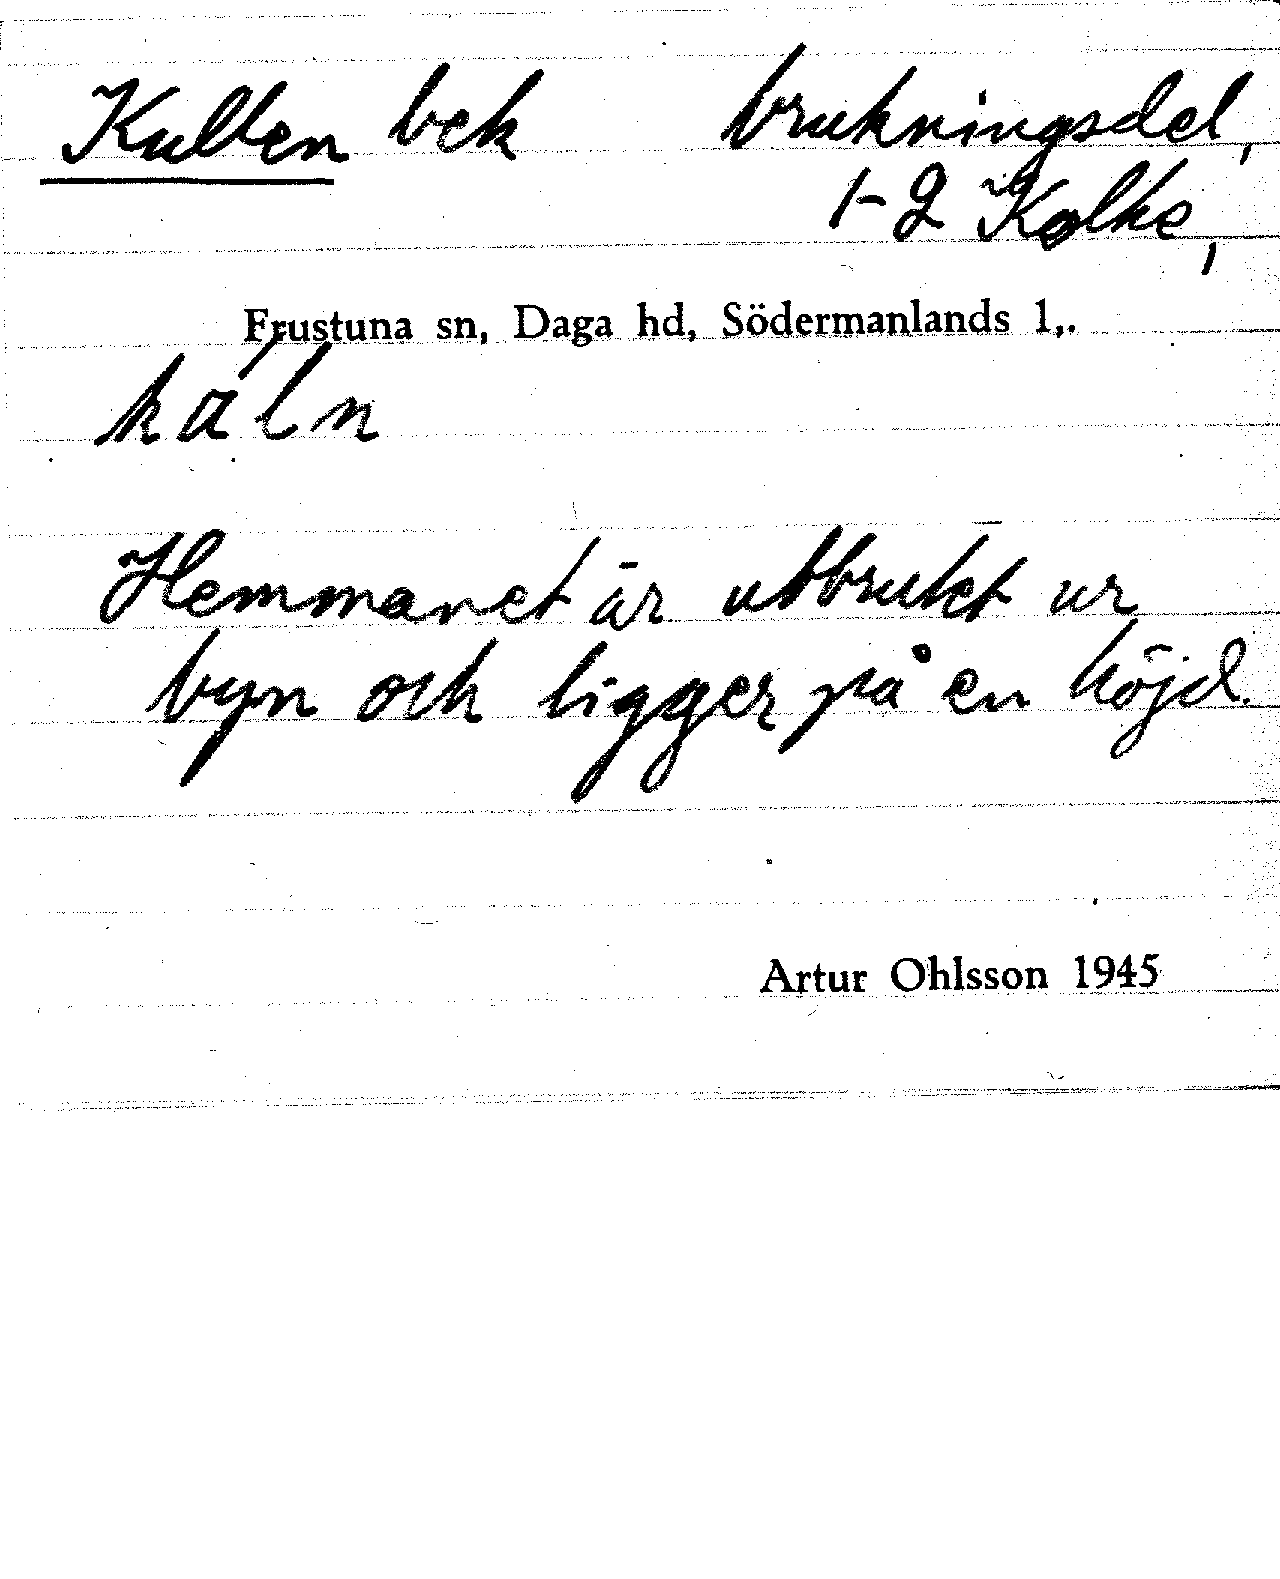 Kullen bek brukningsdel,
1-2 Kolke,
Frustuna sn, Daga hd, Södermanlands l,.
káln
Hemmanet är utbrutet ur
byn och ligger på en höjd.
Artur Ohlsson 1945